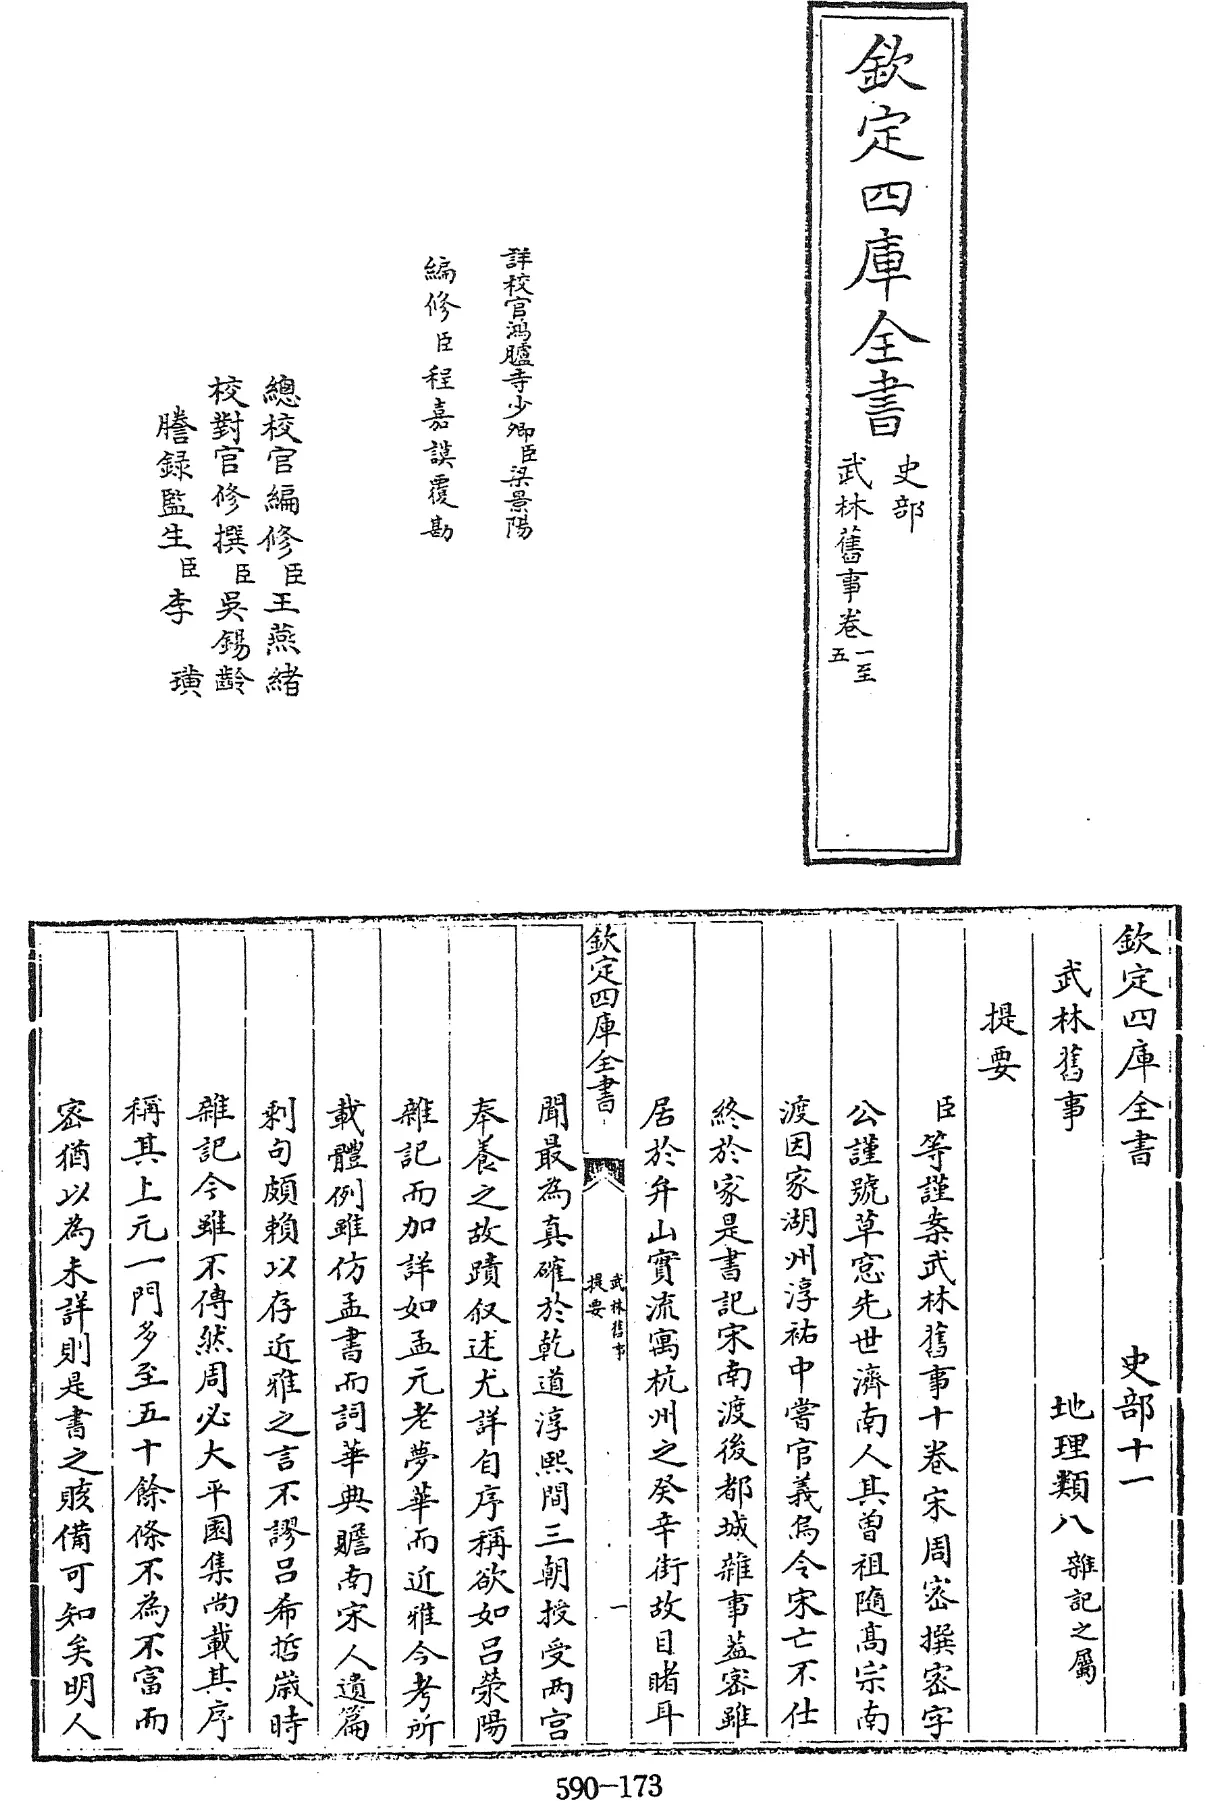 欽定四庫全書
史部
武林舊事卷一至五
詳校官鴻臚寺少卿臣梁景陽
編修臣程嘉謨覆勘
總校官編修臣王燕緒
校對官修撰臣吳錫齡
謄録監生臣李璜
欽定四庫全書 史部十一
武林舊事 地理類八雜記之屬
提要
臣等謹案武林舊事十卷宋周密撰密字
公謹號草窓先世濟南人其曽祖隨髙宗南
渡因家湖州淳祐中嘗官義烏令宋亡不仕
終於家是書記宋南渡後都城雜事葢密雖
居於弁山實流寓杭州之癸辛街故目睹耳
欽定四庫全書
武林舊事
提要
一
聞最為真確於乾道淳熙間三朝授受兩宮
奉養之故蹟叙述尤詳自序稱欲如吕滎陽
雜記而加詳如孟元老夢華而近雅今考所
載體例雖仿孟書而詞華典贍南宋人遺篇
剩句頗賴以存近雅之言不謬吕希哲歲時
雜記今雖不傳然周必大平園集尚載其序
稱其上元一門多至五十餘條不為不富而
密猶以為未詳則是書之賅備可知矣明人
590-173